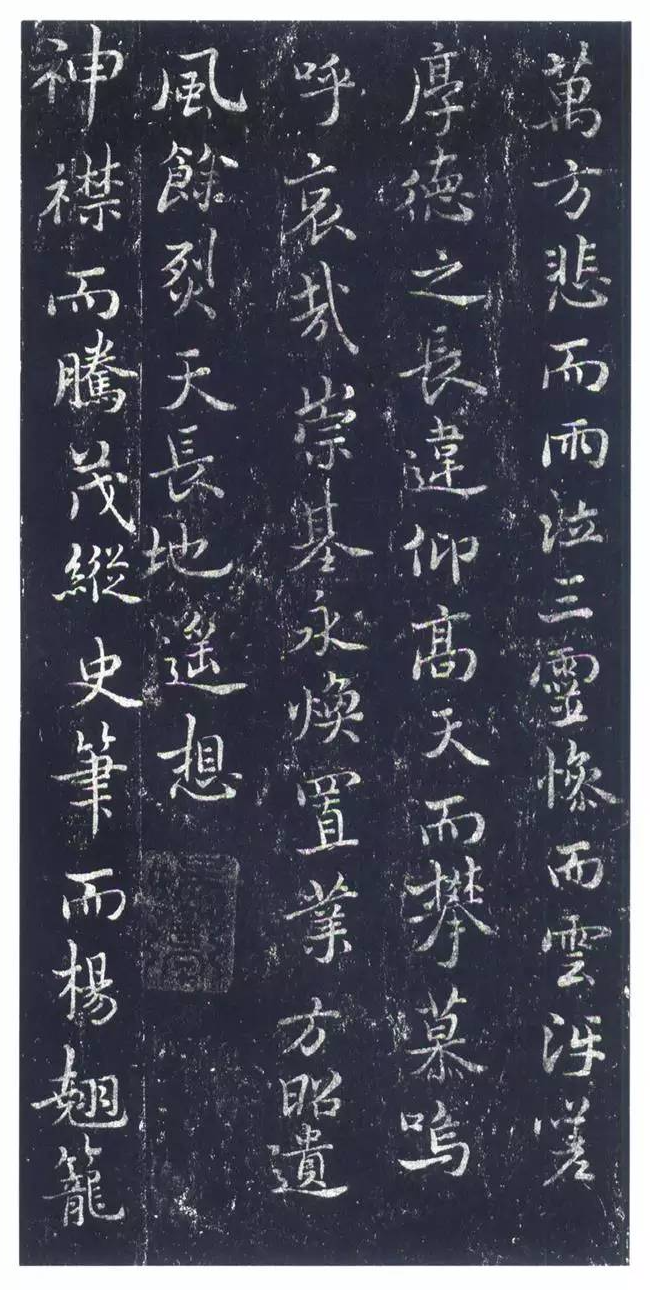 萬方悲而雨泣三靈慘而雲沍嗟
厚德之長違仰高天而攀慕嗚
呼哀哉崇基永煥置業方昭遺
風餘烈天長地遥想
神襟而騰茂縱史筆而楊翹籠